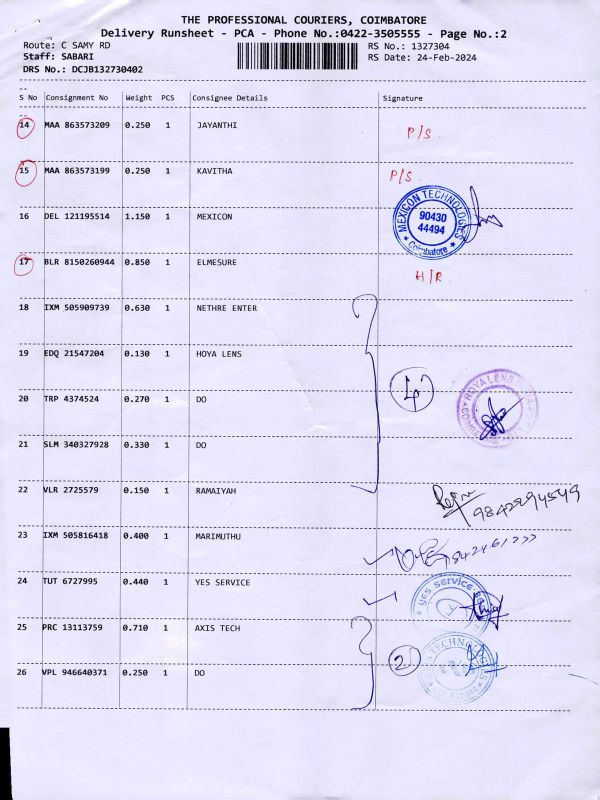 THE PROFESSIONAL COURIERS, COIMBATORE
Delivery Runsheet - PCA - Phone No.:0422-3505555 - Page No.:2
Route: C SAMY RD RS No.: 1327304
Staff: SABARI RS Date: 24-Feb-2024
DRS No.: DCJB132730402
S No Consignment No Weight PCS Consignee Details Signature
14 MAA 863573209 0.250 1 JAYANTHI P/S
15 MAA 863573199 0.250 1 KAVITHA P/S
16 DEL 121195514 1.150 1 MEXICON
MEXICON TECHNOLOGIES
90430
44494
Coimbatore
17 BLR 8150260944 0.850 1 ELMESURE H/R
18 IXM 505909739 0.630 1 NETHRE ENTER
19 EDQ 21547204 0.130 1 HOYA LENS
20 TRP 4374524 0.270 1 DO 4
HOYA LENS
21 SLM 340327928 0.330 1 DO
22 VLR 2725579 0.150 1 RAMAIYAH
23 IXM 505816418 0.400 1 MARIMUTHU
24 TUT 6727995 0.440 1 YES SERVICE
yes service
25 PRC 13113759 0.710 1 AXIS TECH
2
26 VPL 946640371 0.250 1 DO